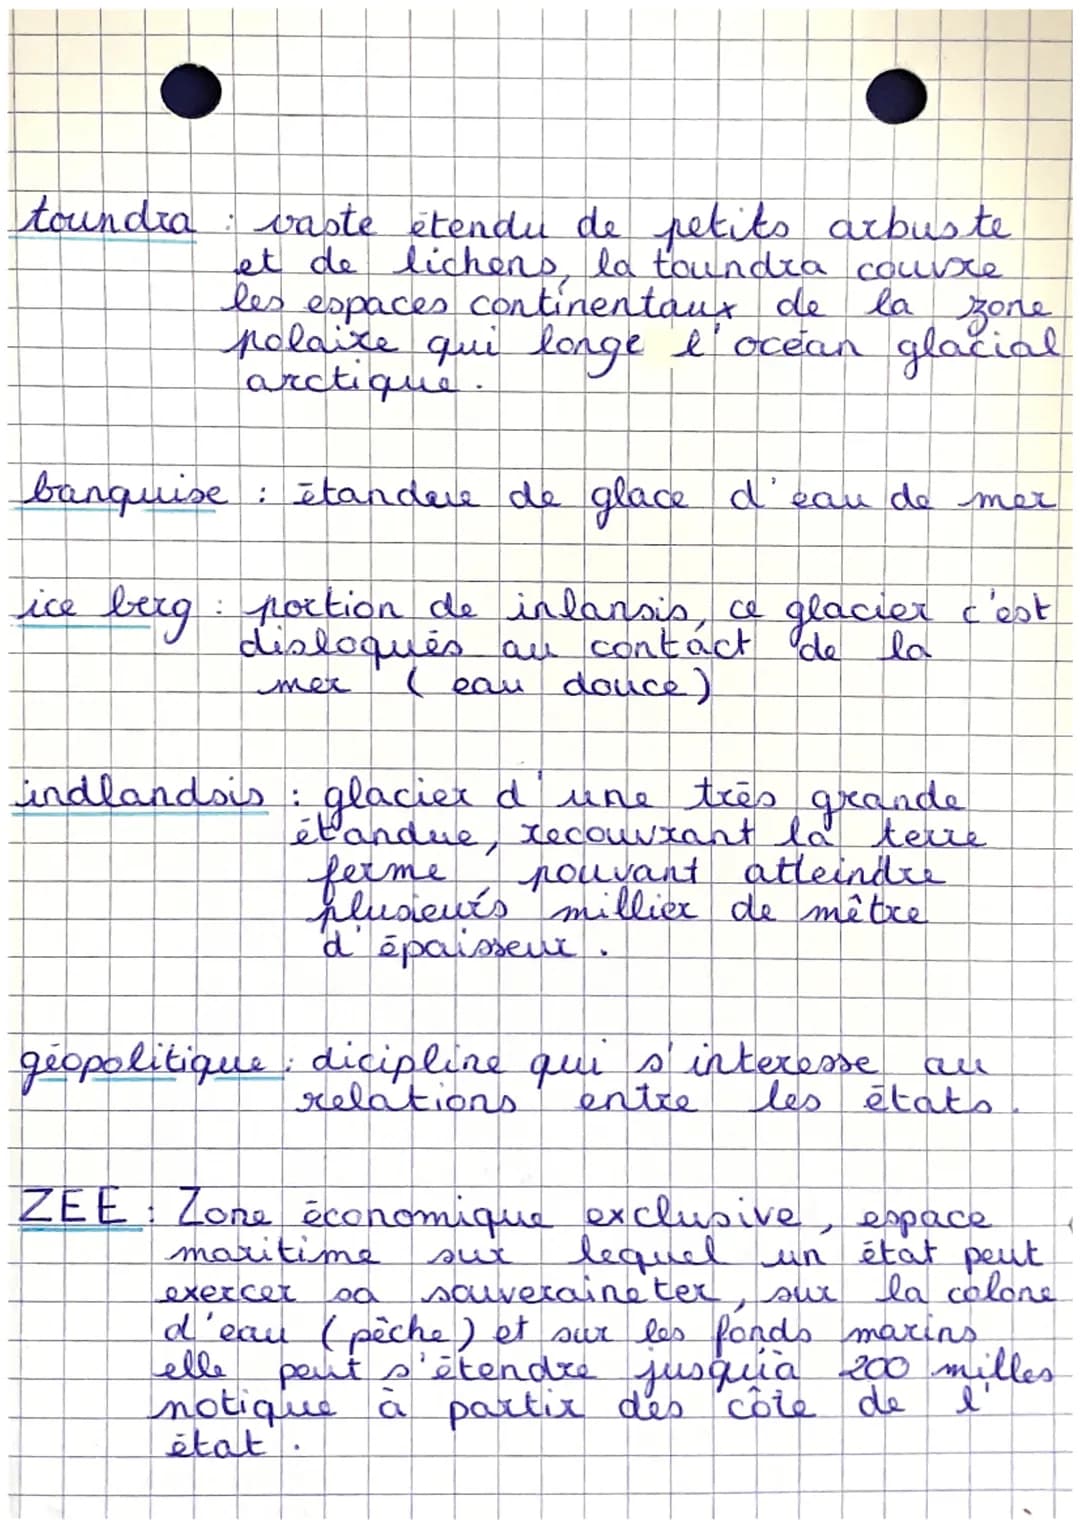 toundra : vaste étendu de petits arbuste
et de lichens, la toundra couvre
les espaces continentaux de la zone
polaire qui longe l'océan glacial
arctique.
banquise : étandue de glace d'eau de mer
ice berg : portion de inlansis, ce glacier c'est
disloqués au contact de la
mer (eau douce)
indlandsis : glacier d'une très grande
étandue, recouvrant la terre
ferme pouvant atteindre
plusieurs millier de mêtre
d'épaisseur.
géopolitique : dicipline qui s'interesse au
relations entre les états.
ZEE : Zone économique exclusive, espace
maritime sur lequel un état peut
exercer sa souveraineter, sur la colone
d'eau (pêche) et sur les fonds marins
elle peut s'étendre jusqu'à 200 milles
notique à partir des côte de l'
état.